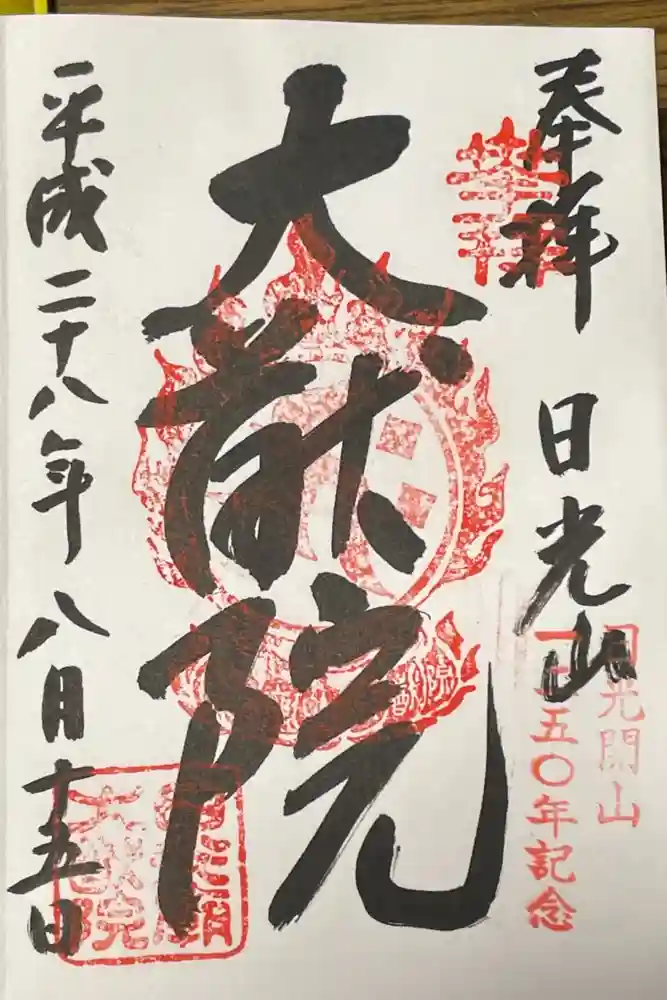 奉拝 日光山
日光開山
一二五〇年記念
大猷院
平成二十八年八月十五日